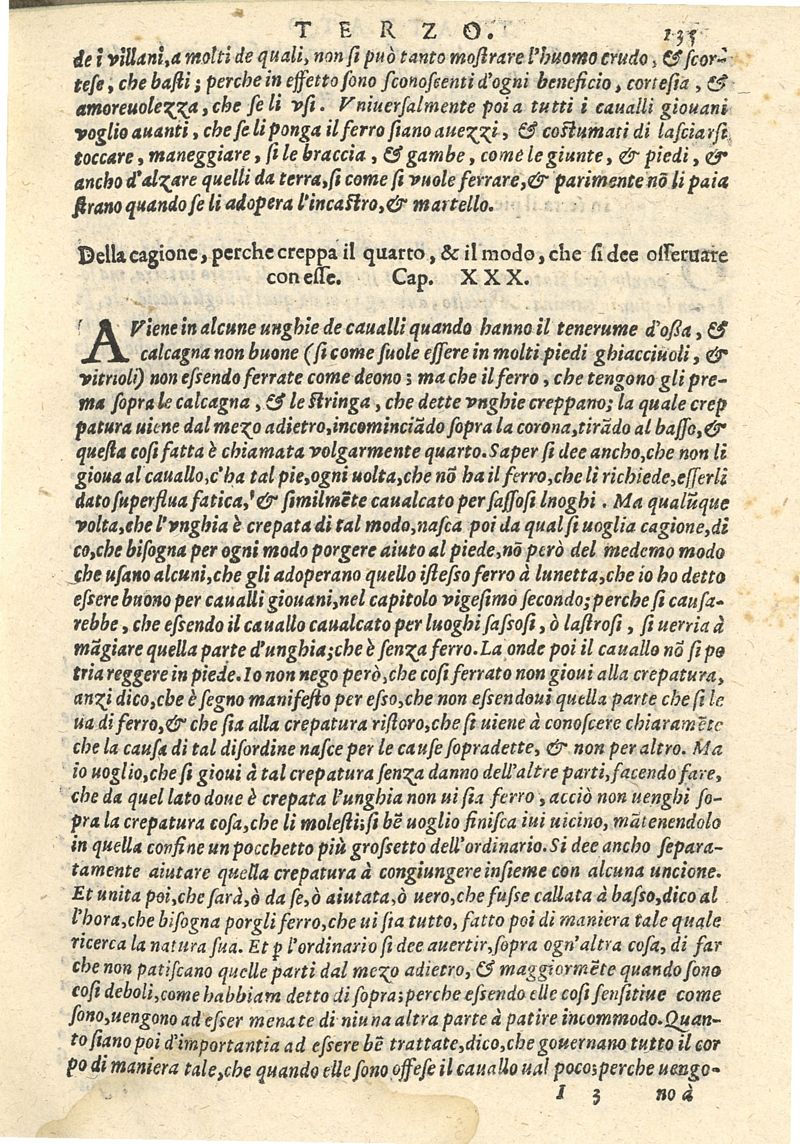 TERZO. 135
de i villani, a molti de quali, non si può tanto mostrare l'huomo crudo, & scor-
tese, che basti; perche in effetto sono sconoscenti d'ogni beneficio, cortesia, &
amoreuolezza, che se li vsi. Vniuersalmente poi a tutti i caualli giouani
voglio auanti, che se li ponga il ferro siano auezzi, & costumati di lasciarsi
toccare, maneggiare, si le braccia, & gambe, come le giunte, & piedi, &
ancho d'alzare quelli da terra, si come si vuole ferrare, & parimente nõ li paia
strano quando se li adopera l'incastro, & martello.
Della cagione, perche creppa il quarto, & il modo, che si dee osseruare
con esse. Cap. XXX.
AViene in alcune unghie de caualli quando hanno il tenerume d'ossa, &
calcagna non buone (si come suole essere in molti piedi ghiacciuoli, &
vitrioli) non essendo ferrate come deono; ma che il ferro, che tengono gli pre-
ma sopra le calcagna, & le stringa, che dette vnghie creppano; la quale crep
patura uiene dal mezo adietro, incominciãdo sopra la corona, tirãdo al basso, &
questa cosi fatta è chiamata volgarmente quarto. Saper si dee ancho, che non li
gioua al cauallo, c'ha tal pie, ogni uolta, che nõ ha il ferro, che li richiede, esserli
dato superflua fatica, & similmẽte caualcato per sassosi lnoghi. Ma qualũque
volta, che l'vnghia è crepata di tal modo, nasca poi da qual si uoglia cagione, di
co, che bisogna per ogni modo porgere aiuto al piede, nõ però del medemo modo
che usano alcuni, che gli adoperano quello istesso ferro à lunetta, che io ho detto
essere buono per caualli giouani, nel capitolo vigesimo secondo; perche si causa-
rebbe, che essendo il cauallo caualcato per luoghi sassosi, ò lastrosi, si uerria à
mãgiare quella parte d'unghia; che è senza ferro. La onde poi il cauallo nõ si po
tria reggere in piede. Io non nego però, che cosi ferrato non gioui alla crepatura,
anzi dico, che è segno manifesto per esso, che non essendoui quella parte che si le
ua di ferro, & che sia alla crepatura ristoro, che si uiene à conoscere chiaramẽte
che la causa di tal disordine nasce per le cause sopradette, & non per altro. Ma
io uoglio, che si gioui à tal crepatura senza danno dell'altre parti, facendo fare,
che da quel lato doue è crepata l'unghia non ui sia ferro, acciò non uenghi so-
pra la crepatura cosa, che li molesti; si bẽ uoglio finisca iui uicino, mãtenendolo
in quella confine un pocchetto più grossetto dell'ordinario. Si dee ancho separa-
tamente aiutare quella crepatura à congiungere insieme con alcuna uncione.
Et unita poi, che sarà, ò da se, ò aiutata, ò uero, che fusse callata à basso, dico al
l'hora, che bisogna porgli ferro, che ui sia tutto, fatto poi di maniera tale quale
ricerca la natura sua. Et ꝑ l'ordinario si dee auertir, sopra ogn'altra cosa, di far
che non patiscano quelle parti dal mezo adietro, & maggiormẽte quando sono
cosi deboli, come habbiam detto di sopra; perche essendo elle cosi sensitiue come
sono, uengono ad esser menate di niuna altra parte à patire incommodo. Quan-
to siano poi d'importantia ad essere bẽ trattate, dico, che gouernano tutto il cor
po di maniera tale, che quando elle sono offese il cauallo ual poco; perche uengo-
I 3 no à